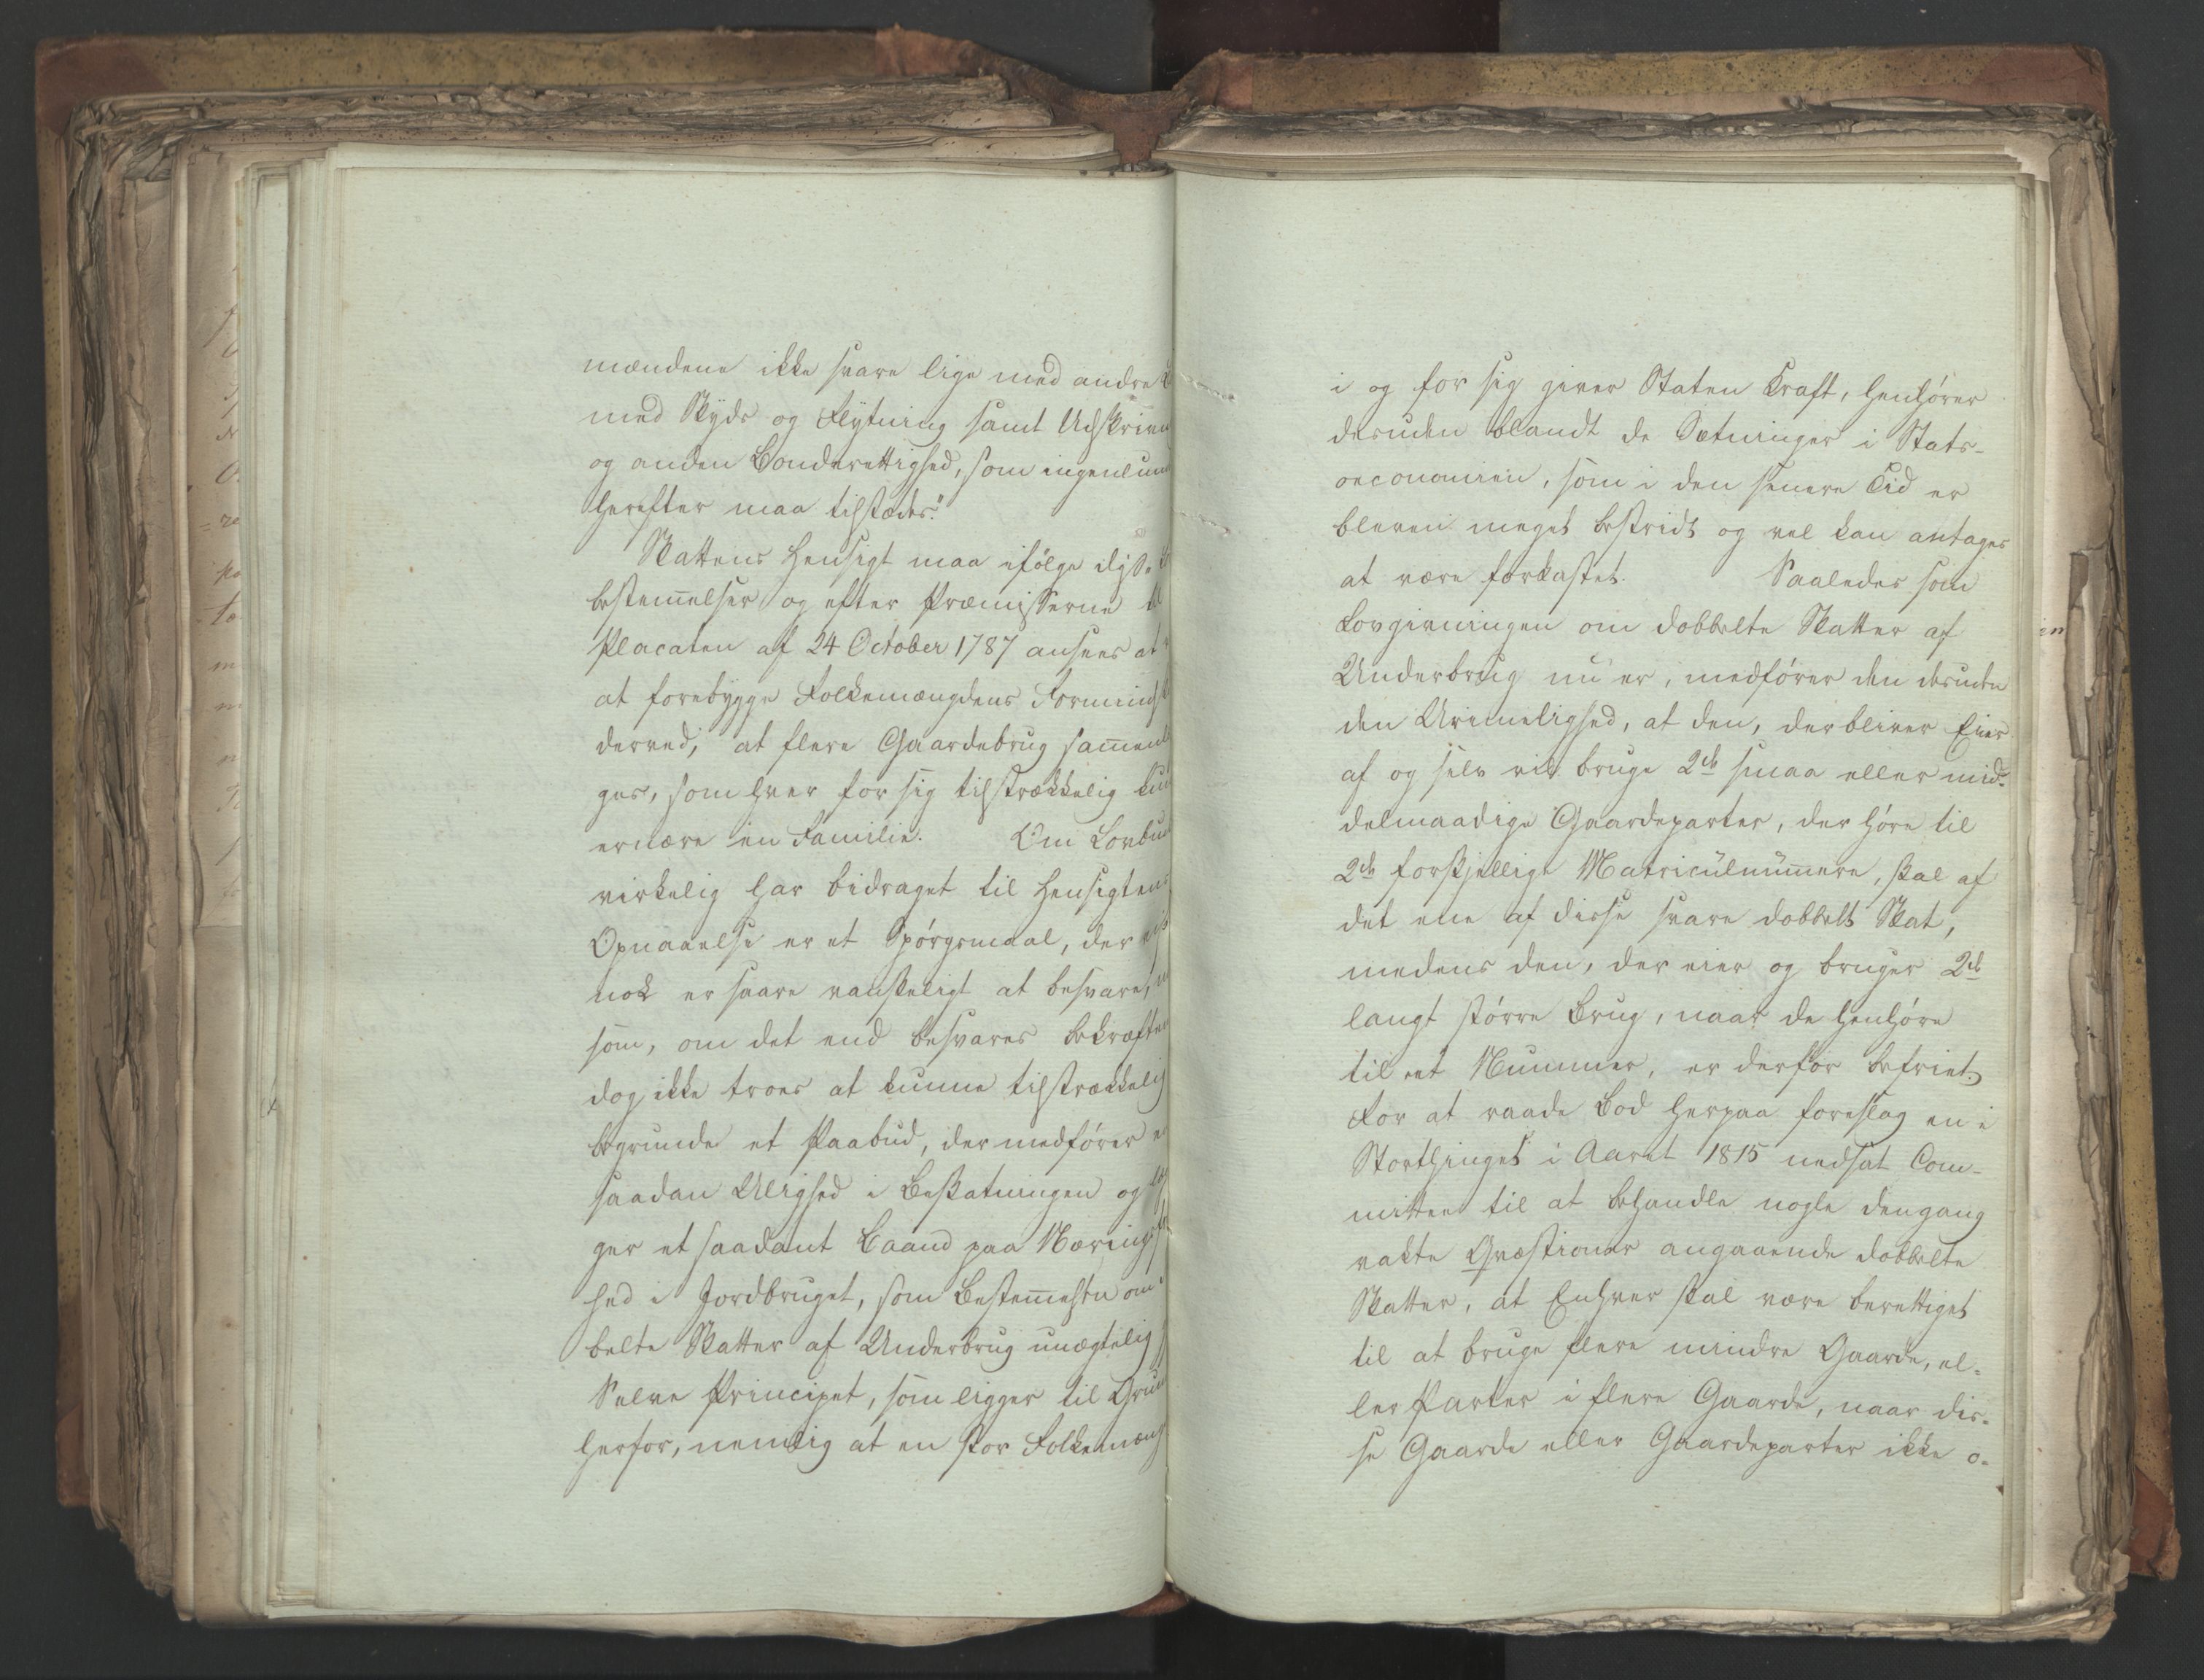 mændene ikke svare lige med andre
med Skyds og Flytning samt Udskrivn
og anden Bonderettighed, som ingenlun
herefter maa tilstædes."
Skattens Hensigt maa ifølge disse
bestem̄elser og efter Præmisserne til
Placaten af 24 October 1787 ansees at
at forebygge Folkemængdens Formindsk
derved, at flere Gaardebrug sam̄enl
ges, som hver for sig tilstrækkelig kun
ernære en Familie. Om Lovbud
virkelig har bidraget til Hensigtens
Opnaaelse er et Spørgsmaal, der vist
nok er saare vanskeligt at besvare,
som, om det end besvares bekræften
dog ikke troes at kunne tilstrækkelig
begrunde et Paabud, der medfører en
saadan Ulighed i Beskatningen og læg
ger et saadant Baand paa Næringsf
hed i Jordbruget, som Bestem̄elsen om
belte Skatter af Underbrug unægtelig
Selve Principet, som ligger til Grun
herfor, nemlig at en stor Folkemæng
i og for sig giver Staten Kraft, henhører
desuden blandt de Sætninger i Stats-
oeconomien, som i den senere Tid er
bleven meget bestridt og vel kan antages
at være forkastet. Saaledes som
Lovgivningen om dobbelte Skatter af
Underbrug nu er, medfører den desuden
den Urimelighed, at den, der bliver Eier
af og selv vil bruge 2de smaa eller mid-
delmaadige Gaardeparter, der høre til
2de forskjellige Matriculnum̄ere, skal af
det ene af disse svare dobbelt Skat,
medens den, der eier og bruger 2de
langt større Brug, naar de henhøre
til eet Nummer, er derfor befriet.
For at raade Bod herpaa foreslog en i
Storthinget i Aaret 1815 nedsat Com-
mittee til at behandle nogle dengang
vakte Qvæstioner angaaende dobbelte
Skatter, at Enhver skal være berettiget
til at bruge flere mindre Gaarde, el-
ler Parter i flere Gaarde, naar dis-
se Gaarde eller Gaardeparter ikke o-